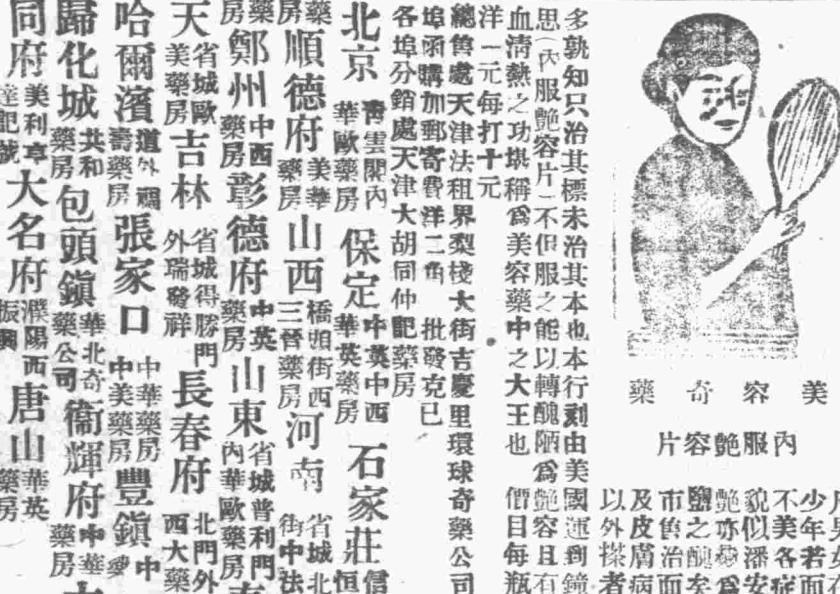 美容奇藥
內服艷容片
不美各症
貌似潘安
艷亦變為
鹽之醜矣
市售治面
及皮膚病
以外搽者
多孰知只治其標未治其本也本行刻由美國運到鏡
思(內服艷容片)不但服之能以轉醜陋為艷容且有
血清熱之功堪稱為美容藥中之大王也 價目每瓶
洋一元每打十元
總售處天津法租界梨棧大街吉慶里環球奇藥公司
埠函購加郵寄費洋二角 批發克己
各埠分銷處天津大胡同仲記藥房
北京 青雲閣內華歐藥房 保定 中英中西華英藥房 石家莊 信恒
藥房 順德府 美華藥房 山西 橋頭街西三晉藥房 河南 省城北街中法
藥房 鄭州 中西藥房 彰德府 中英藥房 山東 省城普利門內華歐藥房
天 省城歐美藥房 吉林 省城得勝門外瑞發祥 長春府 北門外西大藥
哈爾濱 道外壽藥房 張家口 中華藥房中美藥房 豐鎮 中
歸化城 共和藥房 包頭鎮 華北奇藥公司 衞輝府 中華藥房
同府 美利章記號 大名府 濮陽西振興 唐山 華英藥房